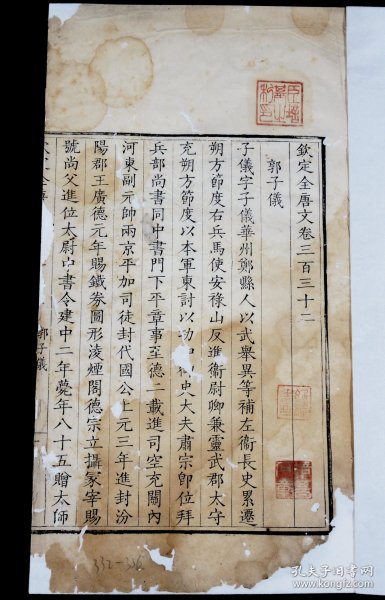 欽定全唐文卷三百三十二
郭子儀
子儀字子儀華州鄭縣人以武舉異等補左衞長史累遷
朔方節度右兵馬使安祿山反進衞尉卿兼靈武郡太守
充朔方節度以本軍東討以功加史大夫肅宗卽位拜
兵部尚書同中書門下平章事至德二載進司空充關內
河東副元帥兩京平加司徒封代國公上元三年進封汾
陽郡王廣德元年賜鐵券圖形淩煙閣德宗立攝冢宰賜
號尚父進位太尉中書令建中二年薨年八十五贈太師
郭子儀
332-336
孔夫子旧书网
kongfz.com